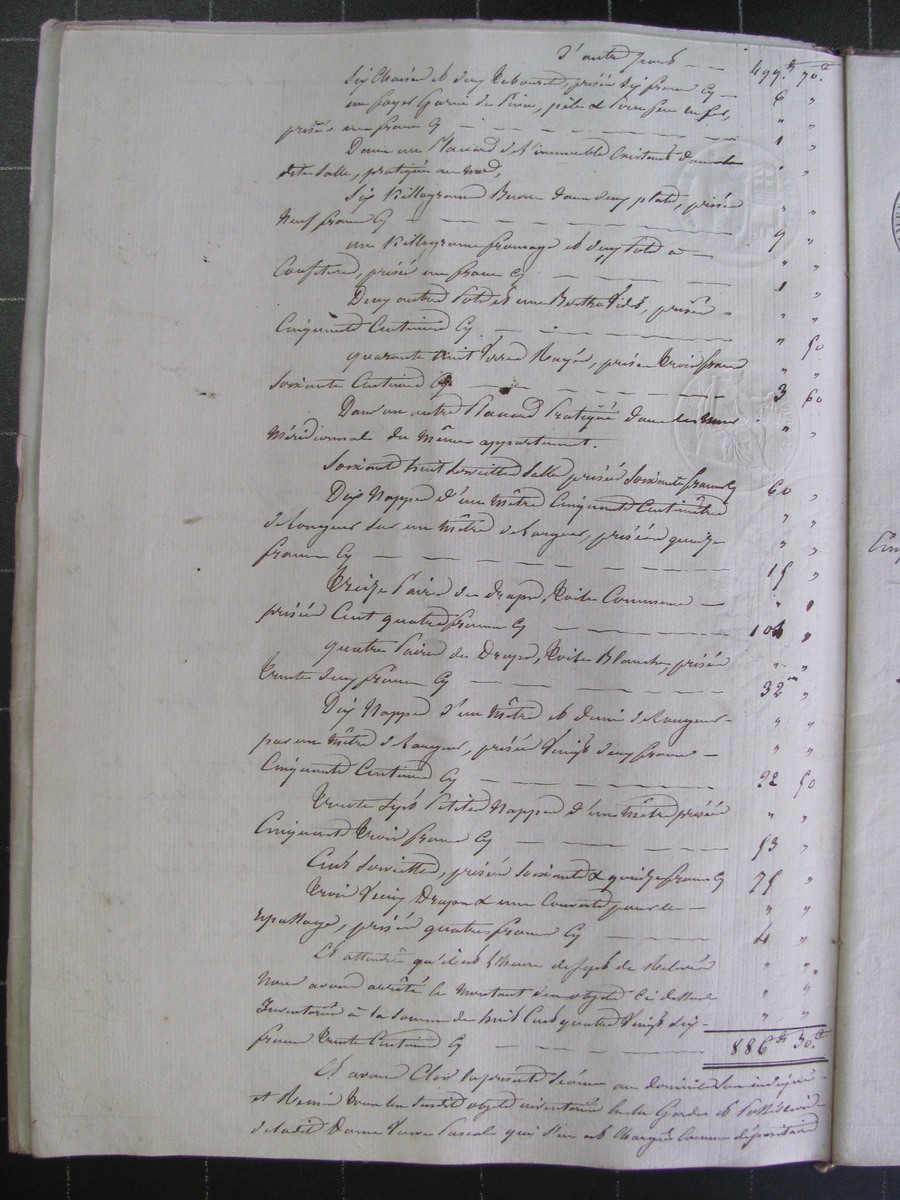 D'autre part — 499.f 70.c
Six Chaises et deux Tabourets, prisés Six francs Cy — 6 "
un foyer Garni de Pince, pèle & fer en fer, " "
prisés un franc Cy — 1 "
Dans un Placard de l'immeuble Existant dans la " "
dite Salle, pratiqué au nord,
Six Killogrames Beurre dans deux plats, prisés " "
Neuf francs Cy — 9 "
un Killogramme fromage et deux Pots a — " "
Confiture, prisés un franc Cy — 1 "
Deux autres Pots et une Boette vides, prisés " "
Cinquante Centimes Cy — " 50
quarante huit Verres Rayés, prisés trois francs " "
Soixante Centimes Cy — 3 60
Dans un autre Placard Pratiqué dans le mur " "
Méridionnal du même appartement.
Soixante huit Serviettes Salle prisés Soixante francs Cy 60 "
Dix Nappes d'un mètre Cinquante Centimètres " "
de Longueur sur un mètre de Largeur, prisées quinze " "
francs Cy — 15 "
Treize Paires de draps, toile Commune — " "
prisés Cent quatre francs Cy — 104 "
quatre Paires de Draps, toile Blanche, prisés " "
trente deux francs Cy — 32 "
Dix Nappes d'un mètre et demi de Longueur — " "
par un mètre de Largeur, prisées Vingt deux francs — " "
Cinquante Centimes Cy — 22 50
trente Sept Petites Nappes d'un mètre prisées " "
Cinquante trois francs Cy — 53 "
Cent Serviettes, prisées Soixante & quinze francs Cy 75 "
trois Vieux Draps & une Couverte pour le — " "
repassage, prisés quatre francs Cy — 4 "
Et attendu qu'il est l'heure de Sept de Relevée " "
Nous avons arrêté le Montant des objets Ci dessus " "
Inventoriés à la Somme de huit Cent quatre Vingt Six — " "
francs trente Centimes Cy — 886f 30.c
Et avons Clos la presente Séance au domicile Sus indiqué
et Remis tous les susdits objets inventoriés en la Garde et Possession
de la dite Dame Veuve Pascal qui s'en est Chargée Comme dépositaire